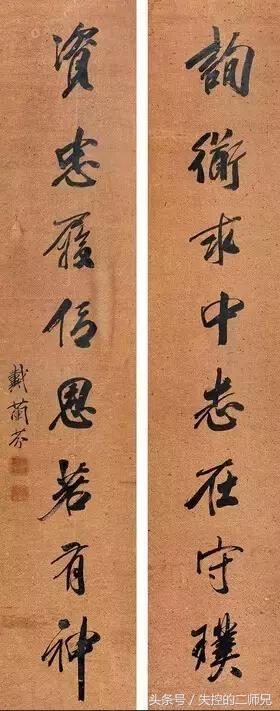 詢衡求中志在守璞
資忠履信思若有神
戴蘭芬
头条号 / 失控的二师兄